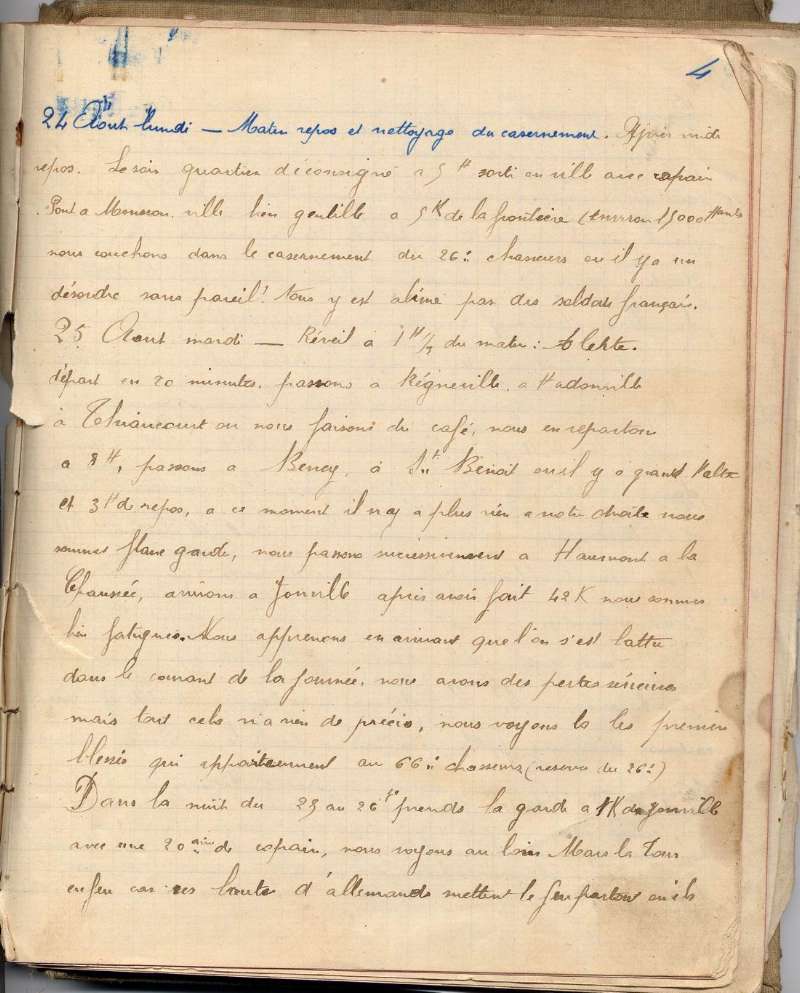 4
24 Aout lundi — Matin repos et nettoyage du casernement. Après midi
repos. Le soir quartier déconsigné a 5H sorti en ville avec copain
Pont a Mousson ville bien gentille a 5K de la frontière (environ 15000 Habts
nous couchons dans le casernement du 26e chasseurs ou il y a un
désordre sans pareil! tous y est abimé par des soldats français.
25 Aout mardi — Réveil à 1H/2 du matin: Alerte.
départ en 20 minutes. passons a Régneville, a Hadonville
à Thiaucourt ou nous faisons du café, nous en repartons
a 8H, passons a Beney, à St Benoit ou il y a grand Halte
et 3H de repos, a ce moment il n'ay a plus rien a notre droite nous
sommes flanc garde, nous passons successivement a Haumont a la
Chaussée, arrivons a Jonville après avoir fait 42K nous sommes
bien fatigués. Nous apprenons en arrivant que l'on s'est battu
dans le courant de la journée, nous avons des pertes sérieuses
mais tout cela n'a rien de précis, nous voyons la les premiers
blessés qui appartiennent au 66e chasseurs (reserve du 26e)
Dans la nuit du 25 au 26 je prends la garde a 1K de Jonville
avec une 20aine de copain, nous voyons au loin Mars la Tour
en feu car ces bouts d'allemands mettent le feu partout ou ils